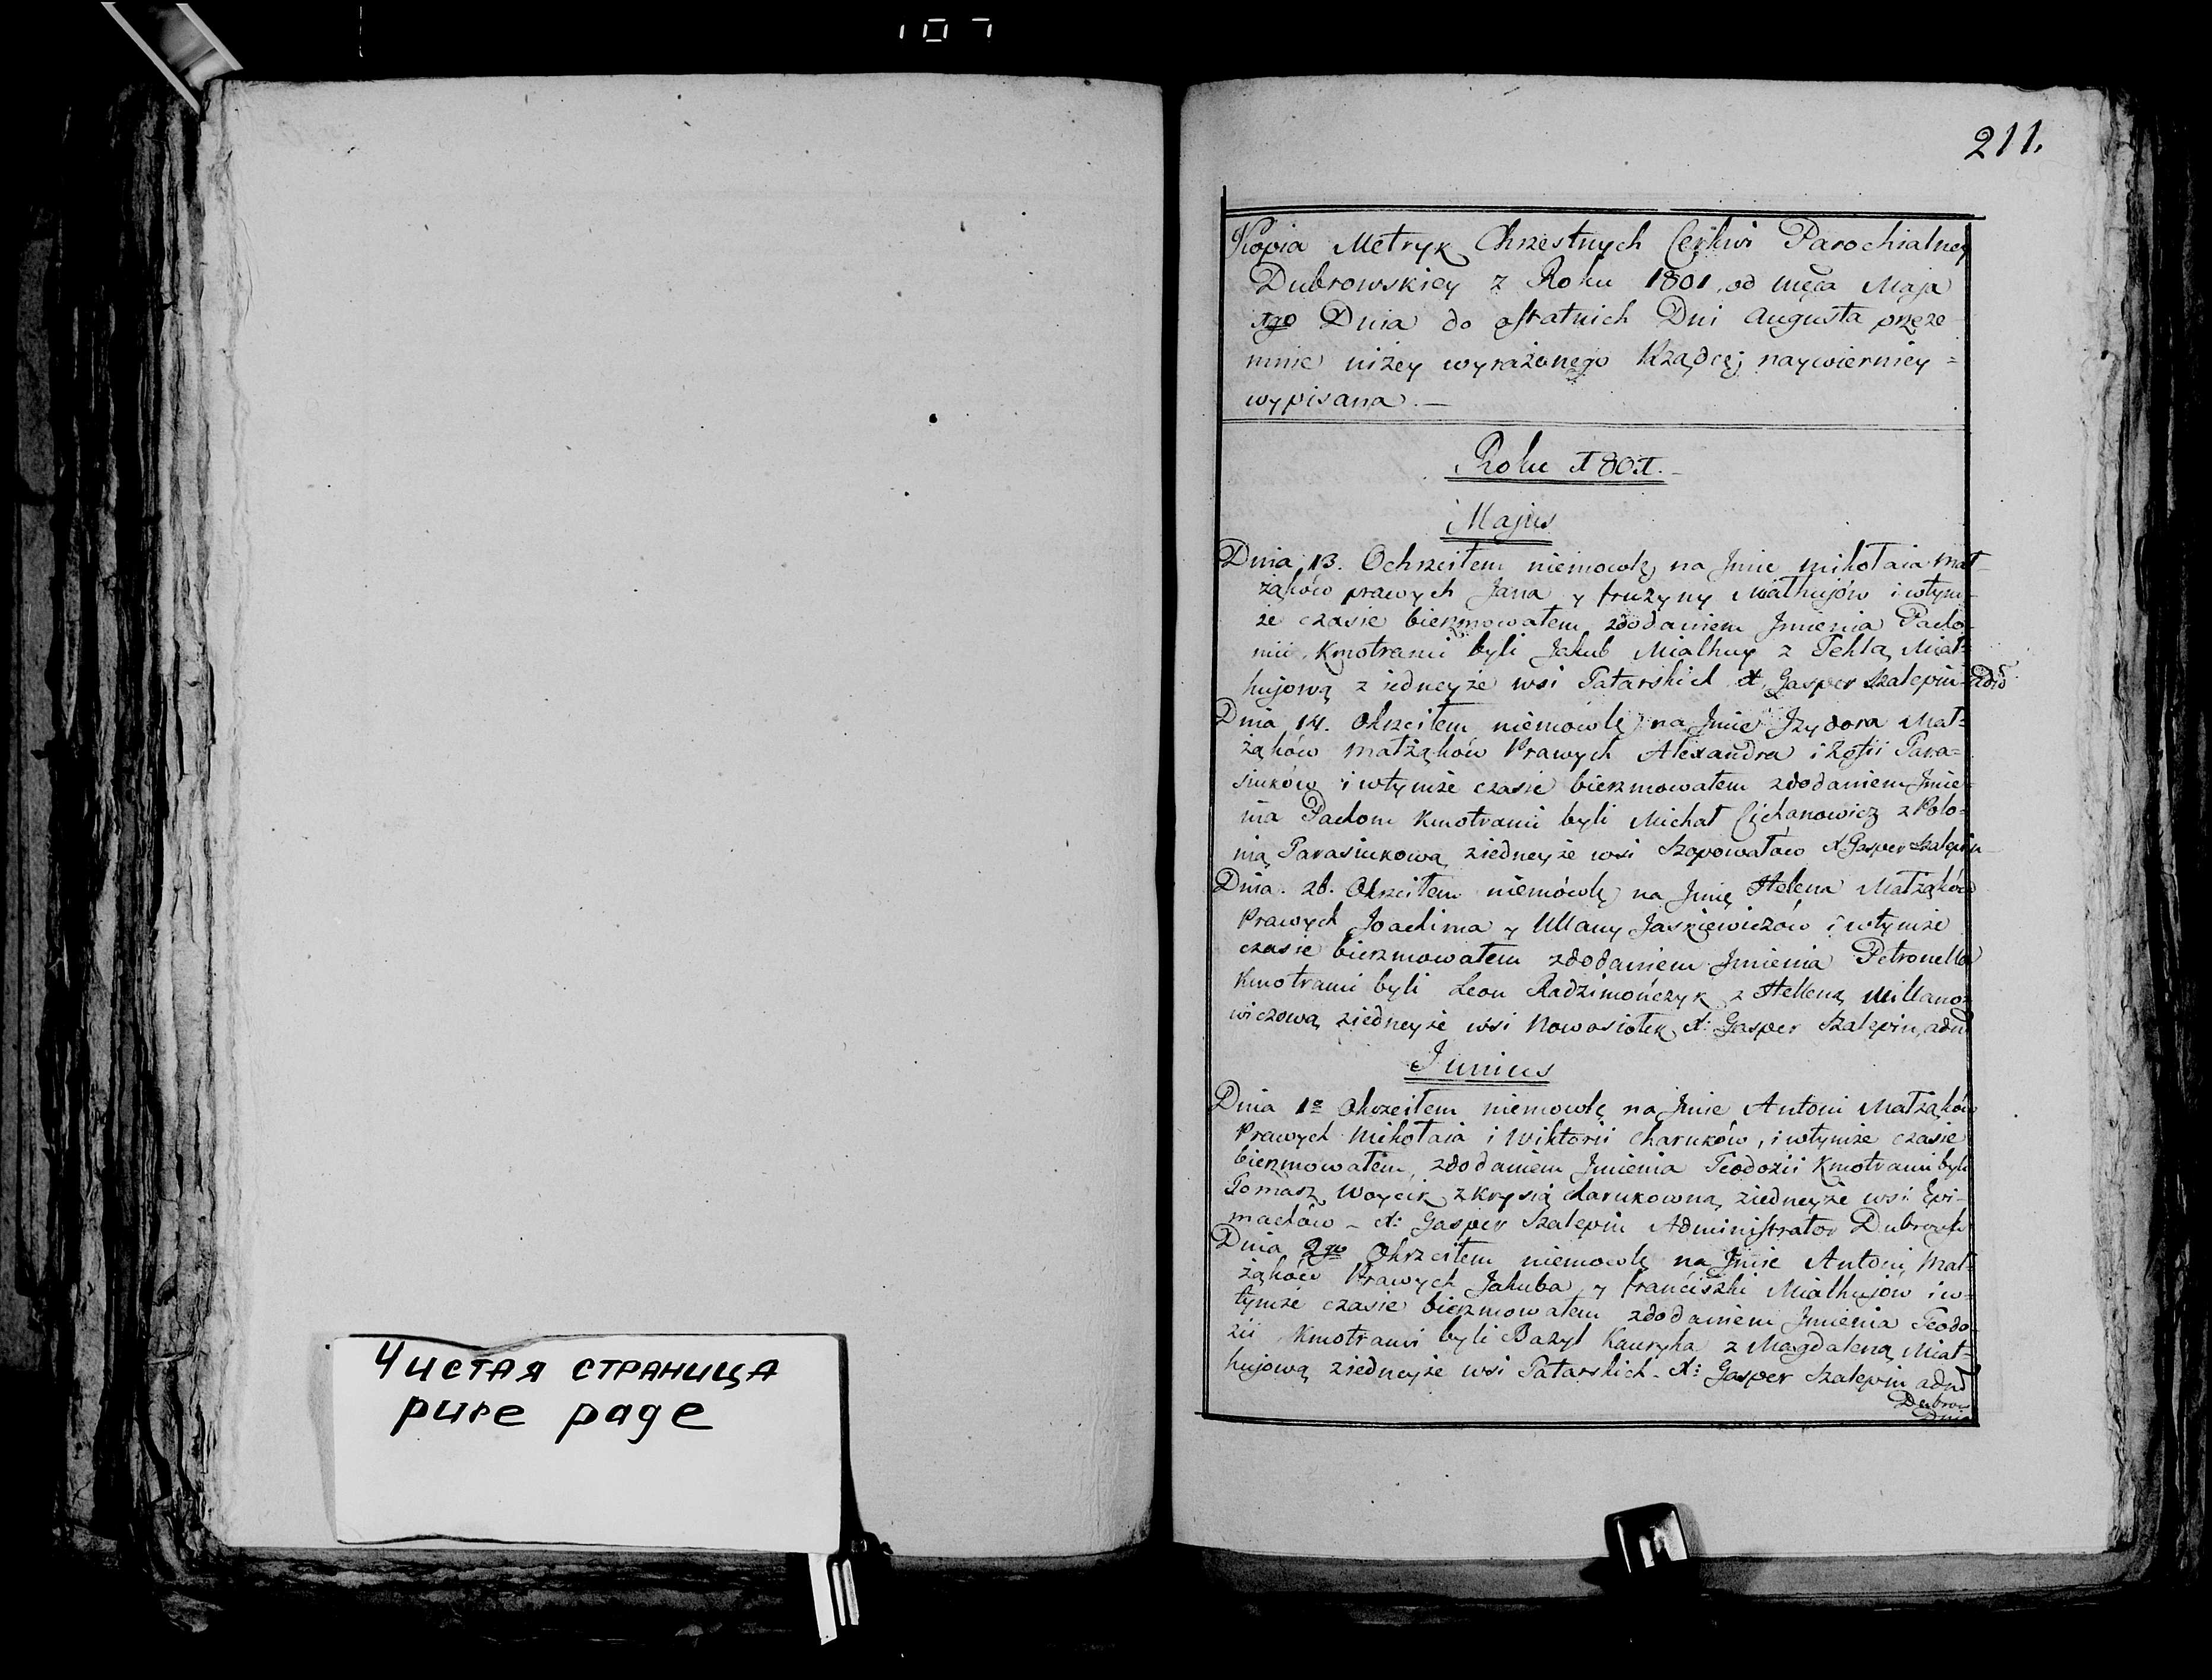 107
Чистая страница
pure page
211.
Kopia Metryk Chrzestnych Cerkwi Parochialney
Dubrowskiey z Roku 1801, od Męca Maja
1go Dnia do ostatnich Dni Augusta przeze
mnie niżey wyrażonego Rządcę; naywierniey =
wypisana. —
Roku 1801. -
Majus
Dnia 13. Ochrzciłem niemowlę na Jmie mikołaia mał-
żąków prawych Jana y fruzyny Miałhujów i wtym-
że czasie bierzmowałem zdodaniem Jmienia Pacho-
mii. Kmotrami byli Jakub Miałhuy z Teklą Miał-
hujową z iedneyże wsi Tatarskich X. Gasper Szalepin
Dnia 14. Okrzciłem niemowlę na Jmie Jzydora Mał=
żąków małżąków Prawych Alexandra i Zofii Para=
siuków i wtymże czasie bierzmowałem zdodaniem Jmie-
nia Pachom Kmotrami byli Michał Cichanowicz z Polo=
nią Parasiukową ziedneyże wsi Szopowałów X Gasper Szalepin
Dnia. 28. Okrzciłem niemówlę na Jmię Helena Małżąków
Prawych Joachima y Ullany Jaskiewiczów i wtymże
czasie bierzmowałem zdodaniem Jmienia Petronella
Kmotrami byli Leon Radzimończyk z Helleną Millano=
wiczową ziedneyże wsi Nowosiołek X: Gasper Szalepin, adm
Junius
Dnia 1º Okrzciłem niemowlę na Jmie Antoni Małżąków
Prawych Mikołaia i Wiktorii Charuków, i wtymże czasie
bierzmowałem, zdodaniem Jmienia Teodozii Kmotrami byli
Tomasz Woycik z Krysią charukowną ziedneyże wsi Epi-
machów - X: Gasper Szalepin Administrator Dubrowski
Dnia 2go Okrzciłem niemowlę na Jmie Antoni, Mał-
żąków Prawych Jakuba y franciszki Miałhujów i w-
tymże czasie bierzmowałem zdodaniem Jmienia Teodo-
zii Kmotrami byli Bazyl Kauryka z Magdaleną Miał-
hujową ziedneyże wsi Tatarskich. X: Gasper Szalepin adm
Dubrow
Dnia